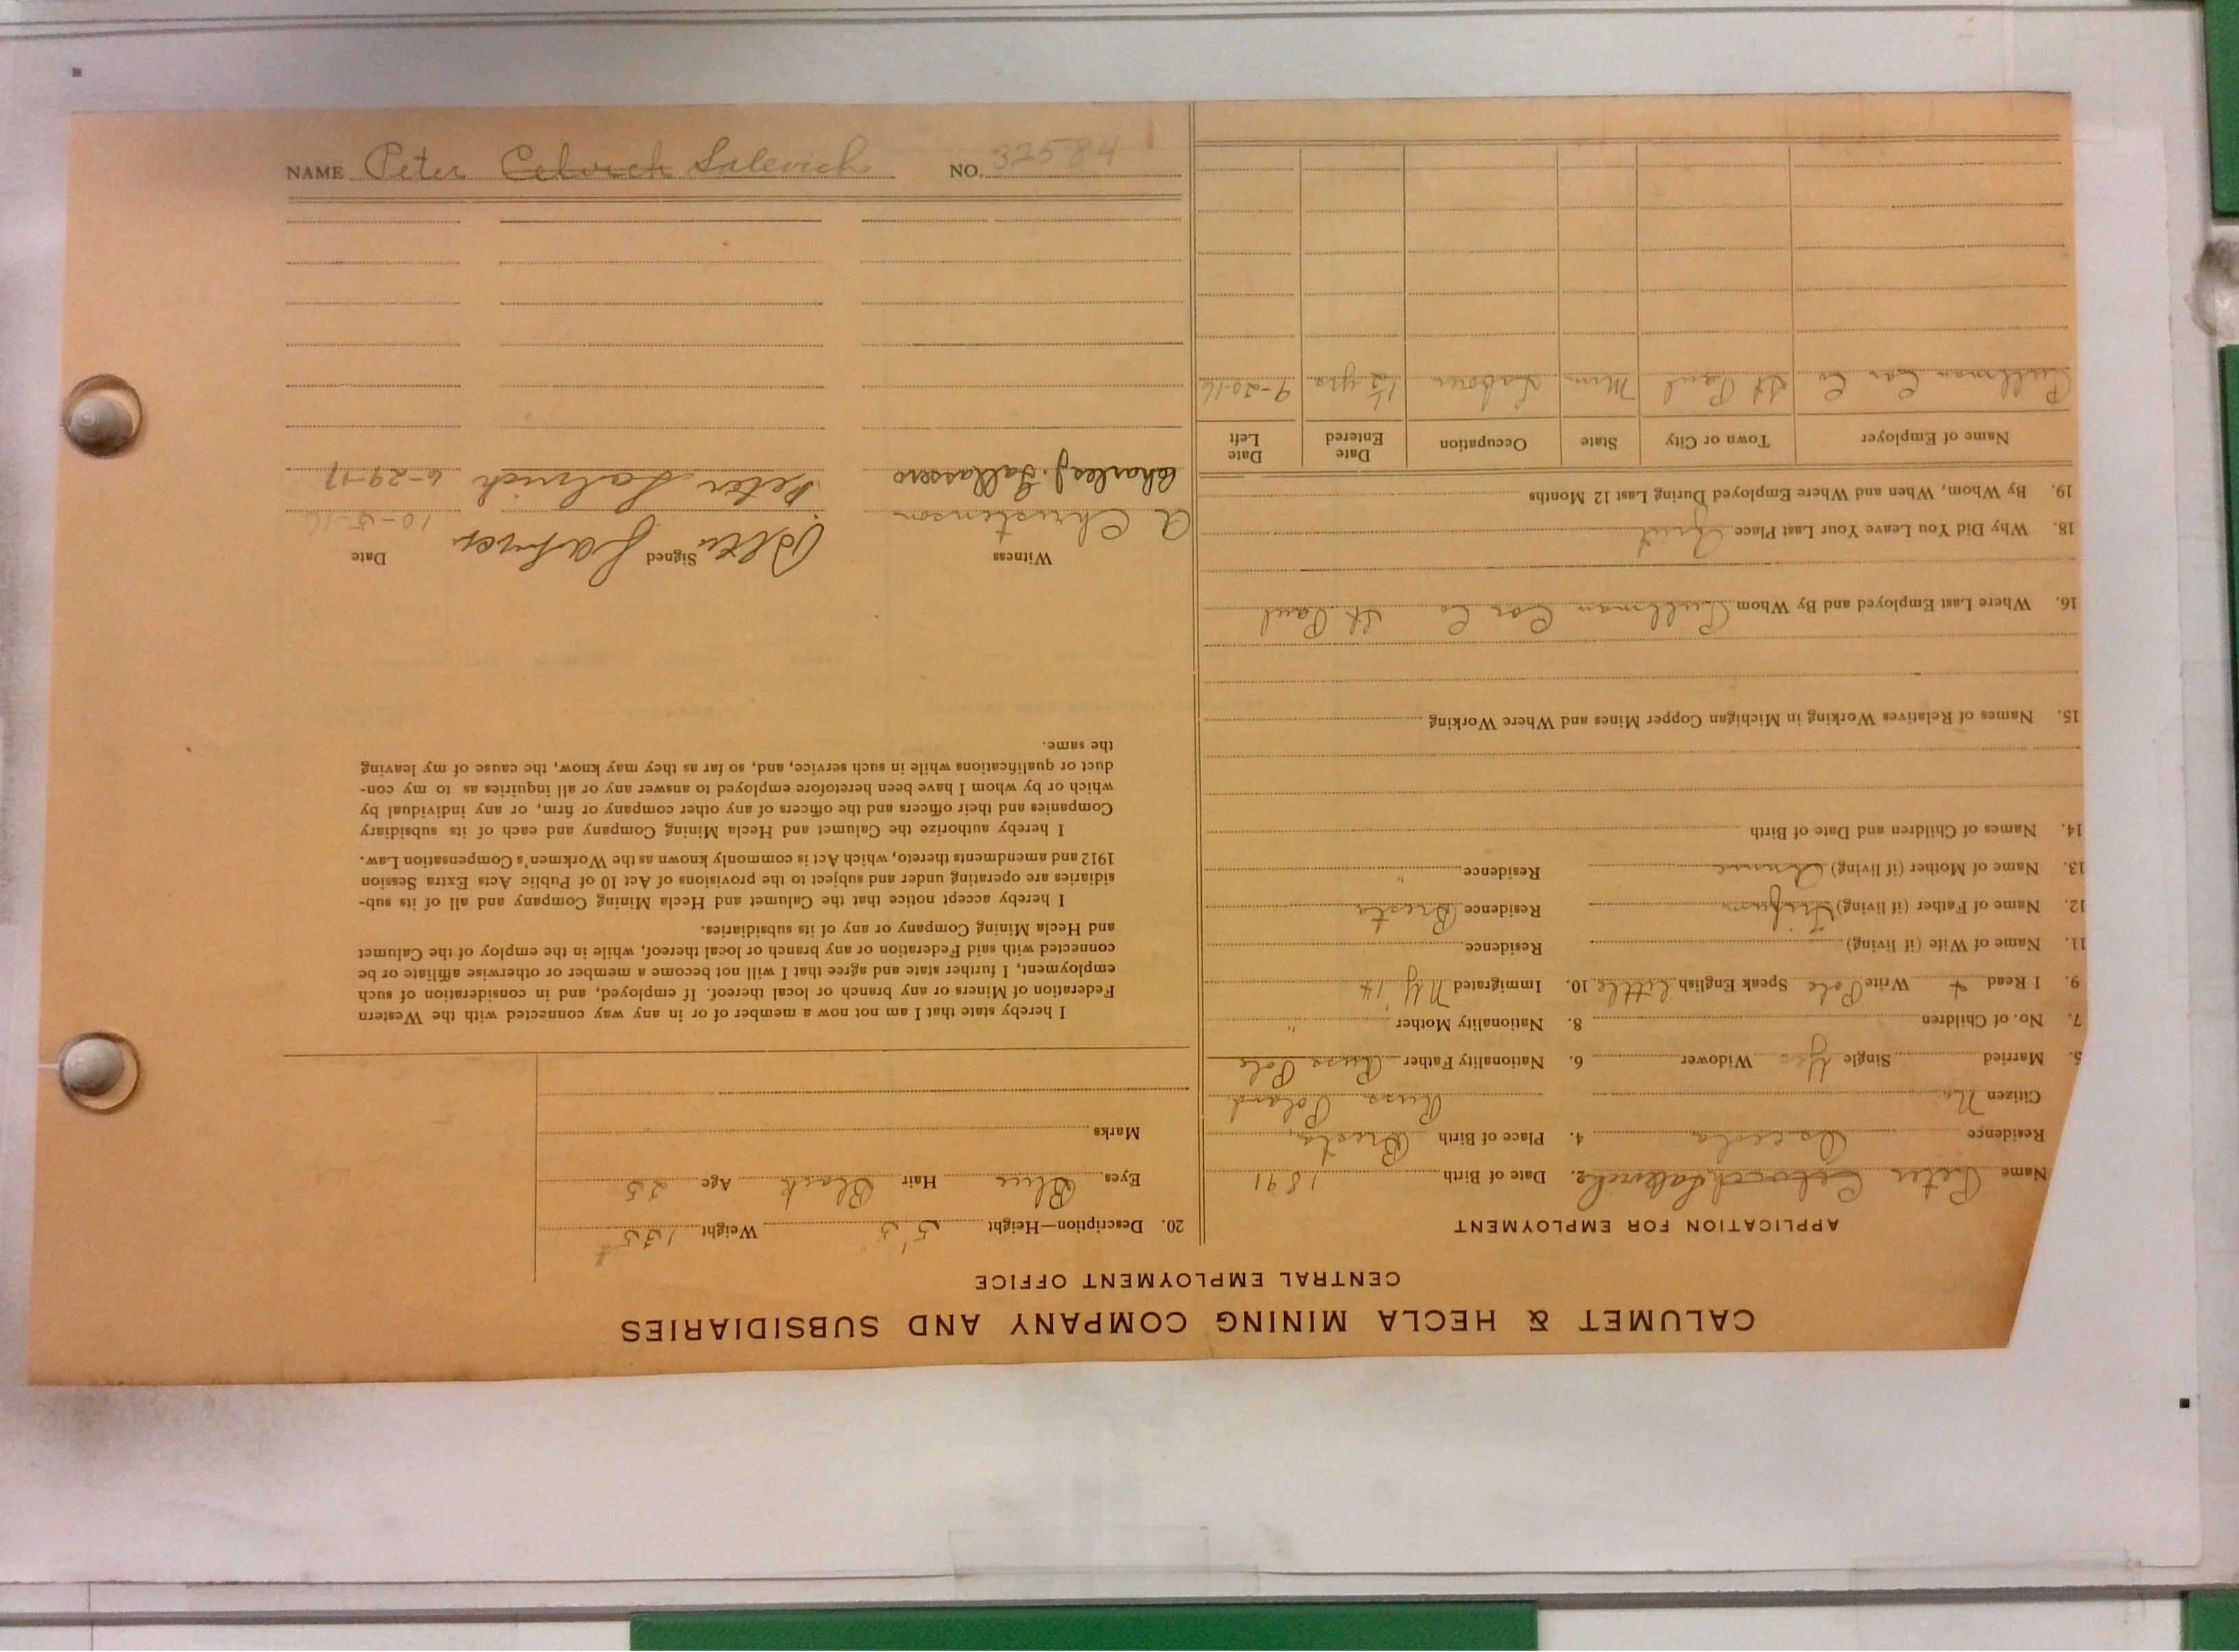 CALUMET & HECLA MINING COMPANY AND SUBSIDIARIES
CENTRAL EMPLOYMENT OFFICE
APPLICATION FOR EMPLOYMENT
Name Peter Celvich Salevich 2. Date of Birth 1891
Residence Osceola 4. Place of Birth Bresta,
Citizen No Russ Poland
5. Married Single Yes Widower 6. Nationality Father Russ Pole
7. No. of Children 8. Nationality Mother "
9. I Read + Write Pole Speak English little 10. Immigrated NY '14
11. Name of Wife (if living) Residence
12. Name of Father (if living) Residence Bresta
13. Name of Mother (if living) Annie Residence "
14. Names of Children and Date of Birth
15. Names of Relatives Working in Michigan Copper Mines and Where Working
16. Where Last Employed and By Whom Pullman Car Co St Paul
18. Why Did You Leave Your Last Place Quit
19. By Whom, When and Where Employed During Last 12 Months
Name of Employer Town or City State Occupation Date Entered Date Left
Pullman Car Co St Paul Minn Laborer 1½ yrs 9-20-16
20. Description—Height 5'5 Weight 135#
Eyes Blue Hair Black Age 25
Marks
I hereby state that I am not now a member of or in any way connected with the Western
Federation of Miners or any branch or local thereof. If employed, and in consideration of such
employment, I further state and agree that I will not become a member or otherwise affiliate or be
connected with said Federation or any branch or local thereof, while in the employ of the Calumet
and Hecla Mining Company or any of its subsidiaries.
I hereby accept notice that the Calumet and Hecla Mining Company and all of its sub-
sidiaries are operating under and subject to the provisions of Act 10 of Public Acts Extra Session
1912 and amendments thereto, which Act is commonly known as the Workmen's Compensation Law.
I hereby authorize the Calumet and Hecla Mining Company and each of its subsidiary
Companies and their officers and the officers of any other company or firm, or any individual by
which or by whom I have been heretofore employed to answer any or all inquiries as to my con-
duct or qualifications while in such service, and, so far as they may know, the cause of my leaving
the same.
Witness Signed Date
A Christenson 10-5-16
Charles J. Peter Salvich 6-29-17
NAME Peter Celvich Salevich NO. 32584